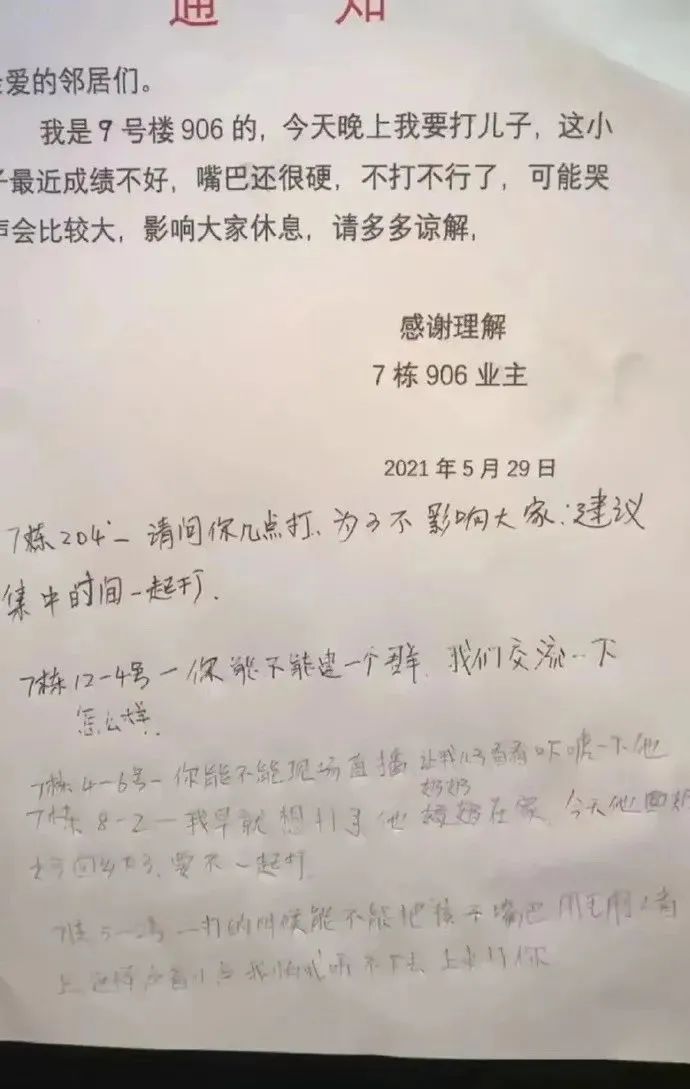 通 知
爱的邻居们。
我是9号楼906的，今天晚上我要打儿子，这小
子最近成绩不好，嘴巴还很硬，不打不行了，可能哭
声会比较大，影响大家休息，请多多谅解，
感谢理解
7栋906业主
2021年5月29日
7栋204－请问你几点打、为了不影响大家：建议
集中时间一起打.
7栋12－4号－你能不能建一个群，我们交流一下
怎么样.
7栋4－6号－你能不能现场直播 让我儿子看看吓唬一下他
奶奶
7栋8－2－我早就想打了他 在家，今天他
回 了，要不一起打.
打的时候能不能把孩子嘴巴用毛巾
上 我怕我听不下去 上来打你